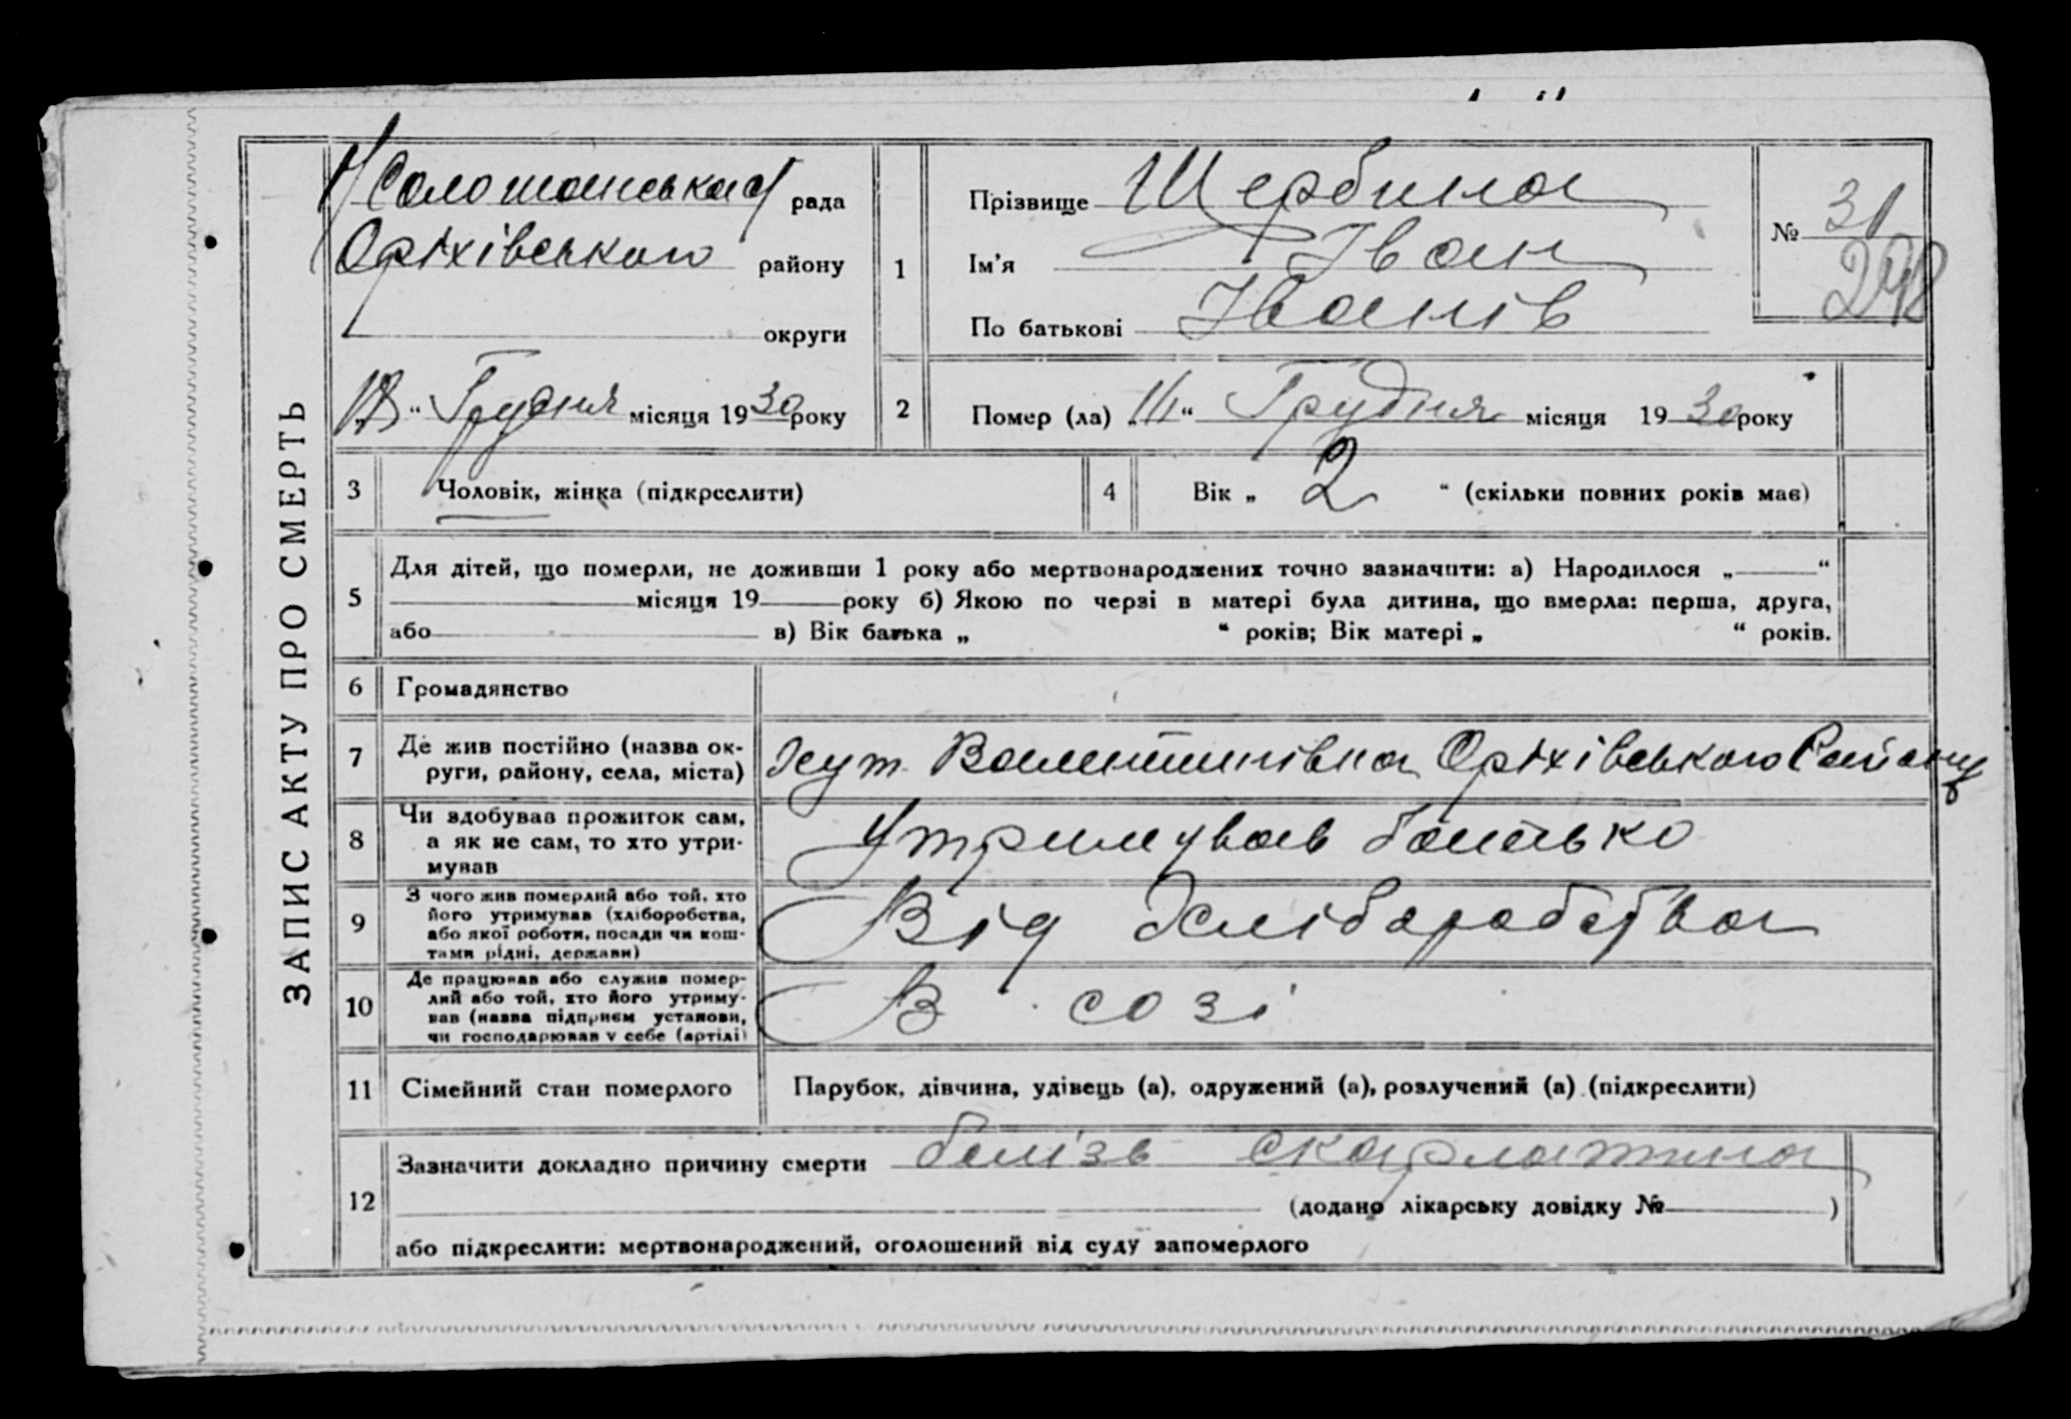 ЗАПИС АКТУ ПРО СМЕРТЬ
Соломанська рада
Оріхівського району
округи
Грудня місяця 1930 року
1
Прізвище Щербина
Ім'я Іван
По батькові Іванів
№ 31
298
2
Помер (ла) „ “ Грудня місяця 1930 року
3 Чоловік, жінка (підкреслити)
4 Вік „ 2 “ (скільки повних років має)
5
Для дітей, що померли, не доживши 1 року або мертвонароджених точно зазначити: а) Народилося „ “
місяця 19 року б) Якою по черзі в матері була дитина, що вмерла: перша, друга,
або в) Вік батька „ “ років; Вік матері „ “ років.
6 Громадянство
7 Де жив постійно (назва ок-
руги, району, села, міста)
Хут. Валентинівна Оріхівського Району
8
Чи здобував прожиток сам,
а як не сам, то хто утри-
мував
Утримував батько
9
З чого жив померлий або той, хто
його утримував (хліборобства,
або якої роботи, посади чи кош-
тами рідні, держави)
Від Хліборобства
10
Де працював або служив помер-
лий або той, хто його утриму-
вав (назва підприєм установи,
чи господарював у себе (артілі)
В созі
11 Сімейний стан померлого
Парубок, дівчина, удівець (а), одружений (а), розлучений (а) (підкреслити)
12
Зазначити докладно причину смерти скарлатина
(додано лікарську довідку № )
або підкреслити: мертвонароджений, оголошений від суду запомерлого